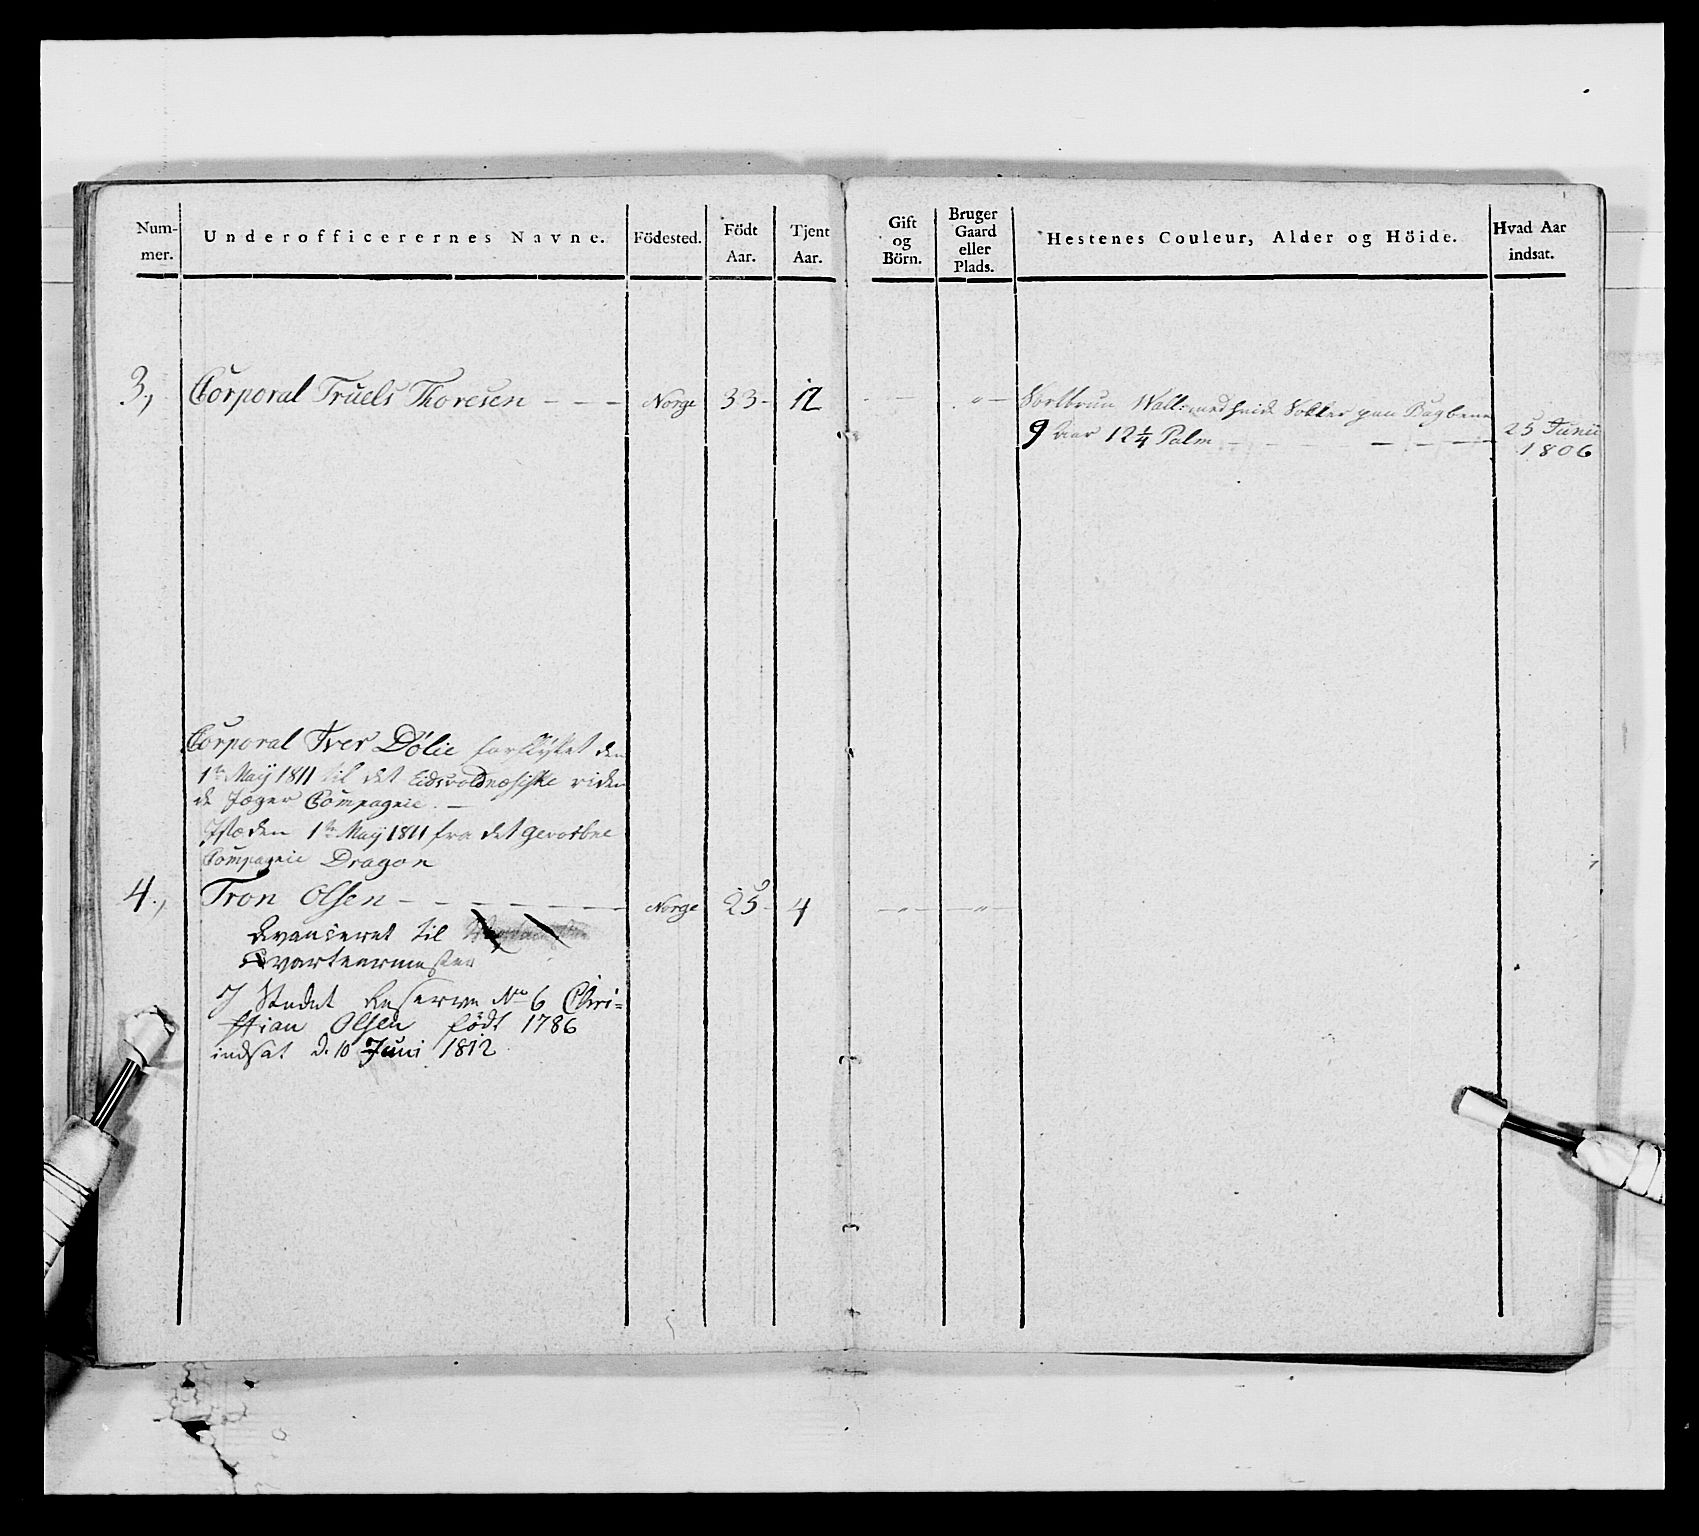 Num-
mer.
Underofficerernes Navne.
Födested.
Födt
Aar.
Tjent
Aar.
Gift
og
Börn.
Bruger
Gaard
eller
Plads.
Hestenes Couleur, Alder og Höide.
Hvad Aar
indsat.
3., Corporal Truels Thoresen - - - Norge 33- 12 - - " - Sortbrun Wall: med hvide Sokker paa Bagbene
9 Aar 12 1/4 Palm - - - - - - 25 Junii
1806
Corporal Iver Dölie forflyttet den
1te Maÿ 1811 til det Eidsvoldnæsiske riden
de Jæger Compagnie. -
Istæden 1te Maÿ 1811 fra det gevorbne
Compagnie Dragon
4., Tron Olsen - - - - - - Norge 25- 4 - " - - " -
Avanceret til
Qvarteermester
I Stedet Reserve No 6 Chri=
stian Olsen födt 1786
indsat d. 10 Juni 1812